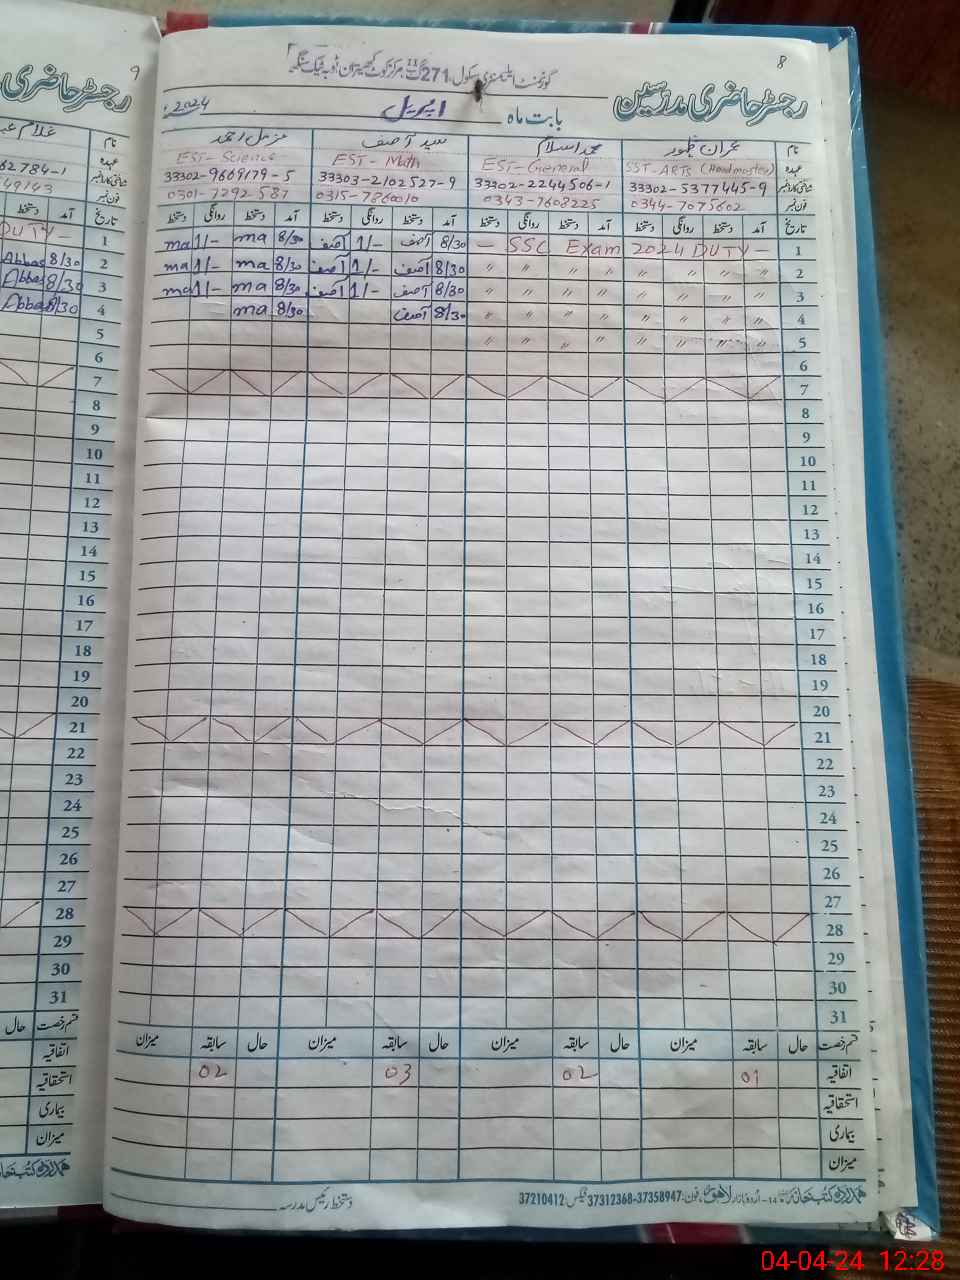 8
گورنمنٹ ایلیمنٹری سکول 271 گ ب مرکز کوٹ کھیتران ٹوبہ ٹیک سنگھ
رجسٹر حاضری مدرسین بابت ماہ اپریل 2024ء
نام عمران ظہور محمد اسلام سید آصف مزمل احمد
عہدہ SST-ARTs (Headmaster) EST-General EST-Math EST-Science
شناختی کارڈ نمبر 33302-5377445-9 33302-2244506-1 33303-2102527-9 33302-9609179-5
فون نمبر 0344-7075602 0343-7608225 0315-7860010 0301-7292587
تاریخ آمد دستخط روانگی دستخط آمد دستخط روانگی دستخط آمد دستخط روانگی دستخط آمد دستخط روانگی دستخط
1 — SSC Exam 2024 DUTY — 8/30 آصف 1/- آصف 8/30 ma 1/- ma
2 〃 〃 〃 〃 〃 〃 〃 〃 8/30 آصف 1/- آصف 8/30 ma 1/- ma
3 〃 〃 〃 〃 〃 〃 〃 〃 8/30 آصف 1/- آصف 8/30 ma 1/- ma
4 〃 〃 〃 〃 〃 〃 〃 〃 8/30 آصف 8/30 ma
5 〃 〃 〃 〃 〃 〃 〃 〃
6
7
8
9
10
11
12
13
14
15
16
17
18
19
20
21
22
23
24
25
26
27
28
29
30
31
قسم رخصت حال سابقہ میزان حال سابقہ میزان حال سابقہ میزان حال سابقہ میزان
اتفاقیہ 01 02 03 02
استحقاقیہ
بیماری
میزان
ہمدرد کتب خانہ 14-اردو بازار لاہور فون: 37358947-37312368 فیکس: 37210412
دستخط رئیس مدرسہ
9
رجسٹر حاضری
نام غلام
عہدہ
شناختی کارڈ نمبر 62784-1
فون نمبر 49143
تاریخ آمد دستخط
1 DUTY —
2 8/30 Abbas
3 8/30 Abbas
4 8/30 Abbas
5
6
7
8
9
10
11
12
13
14
15
16
17
18
19
20
21
22
23
24
25
26
27
28
29
30
31
قسم رخصت حال
اتفاقیہ
استحقاقیہ
بیماری
میزان
ہمدرد کتب خانہ
04-04-24 12:28